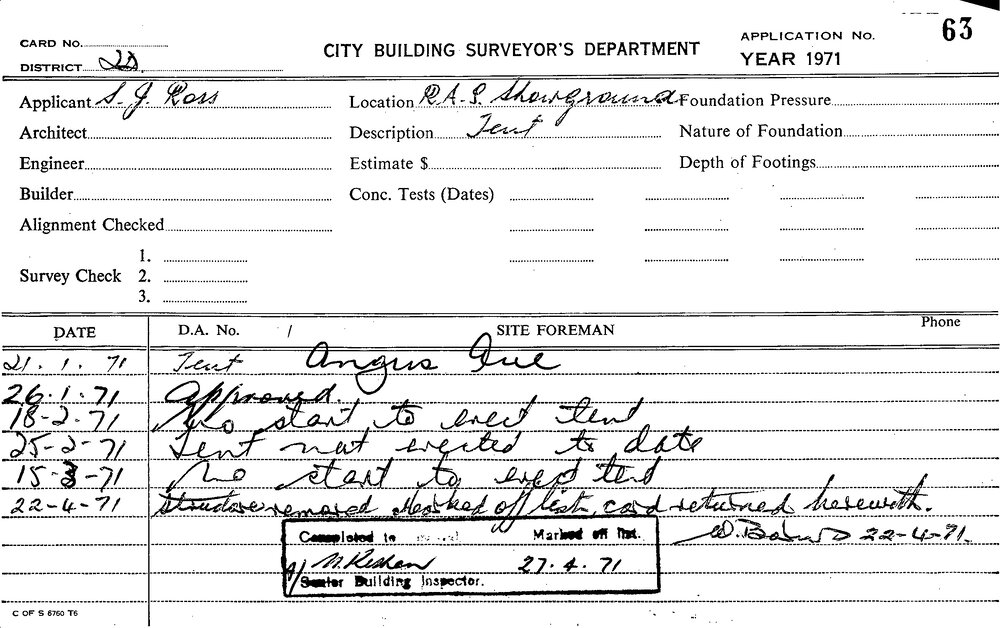 63
CARD No.
DISTRICT 2D.
CITY BUILDING SURVEYOR'S DEPARTMENT
APPLICATION No.
YEAR 1971
Applicant S. J. Ross
Location R.A.S. Showground
Foundation Pressure
Architect
Description Tent
Nature of Foundation
Engineer
Estimate $
Depth of Footings
Builder
Conc. Tests (Dates)
Alignment Checked
Survey Check
1.
2.
3.
DATE
D.A. No. /
SITE FOREMAN
Phone
21.1.71 Tent Angus Ave
26.1.71 Approved.
18-2-71 No start to erect tent
25-2-71 Tent not erected to date
15-3-71 No start to erect tent
22-4-71 Structure removed Marked off list, card returned herewith.
22-4-71.
Completed to Marked off list.
27.4.71
Senior Building Inspector.
C OF S 6760 T6